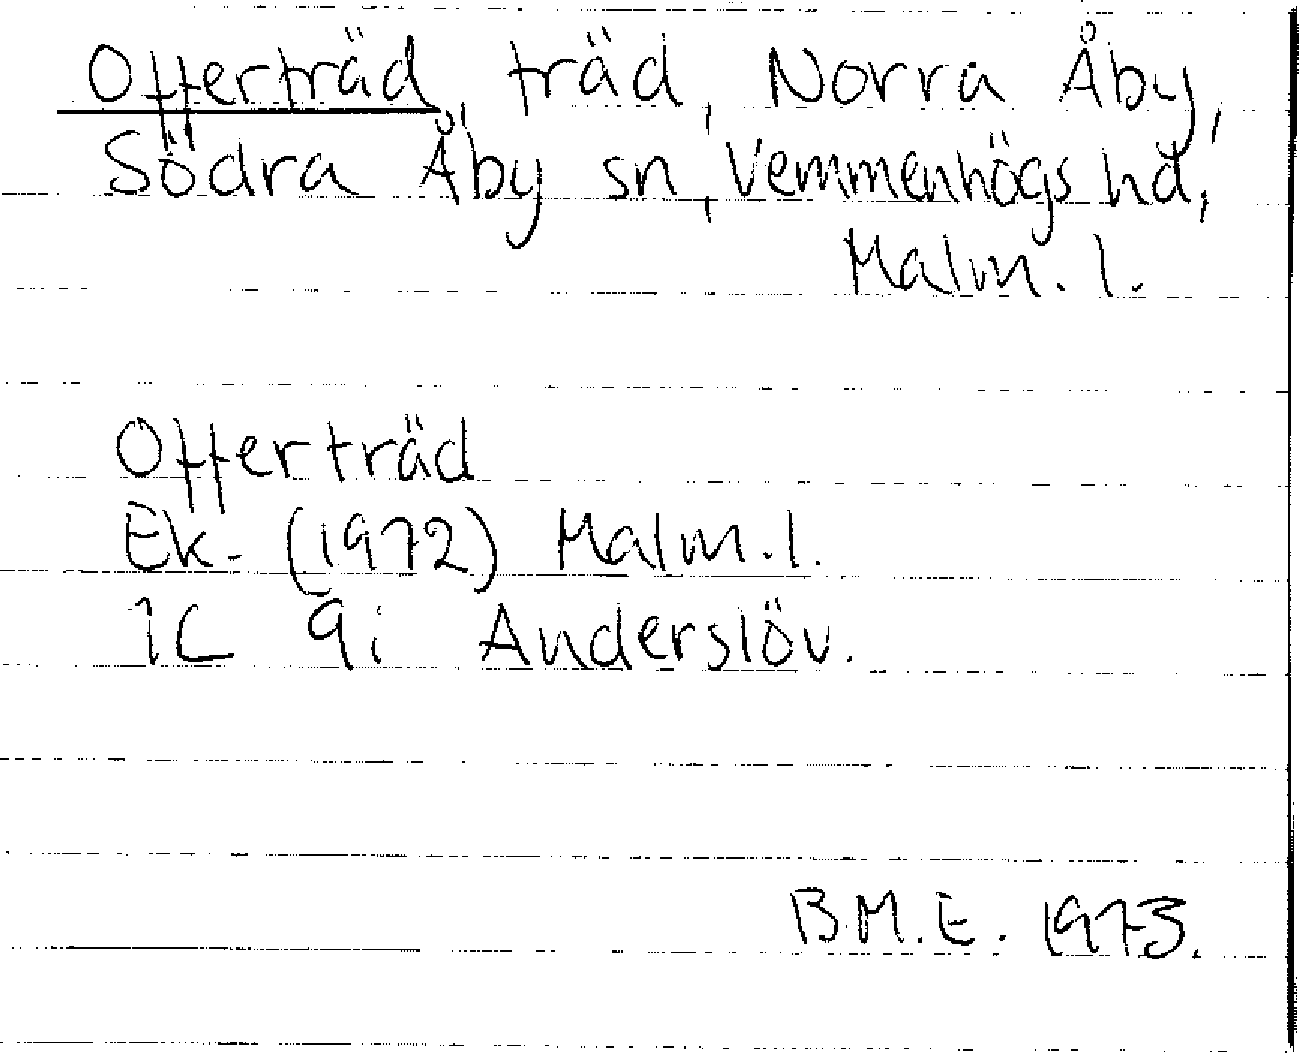 Offerträd, träd, Norra Åby,
Södra Åby sn, Vemmenhögs hd,
Malm. l.
Offerträd
Ek- (1972) Malm. l.
1C 9i Anderslöv.
B.M.E. 1973.